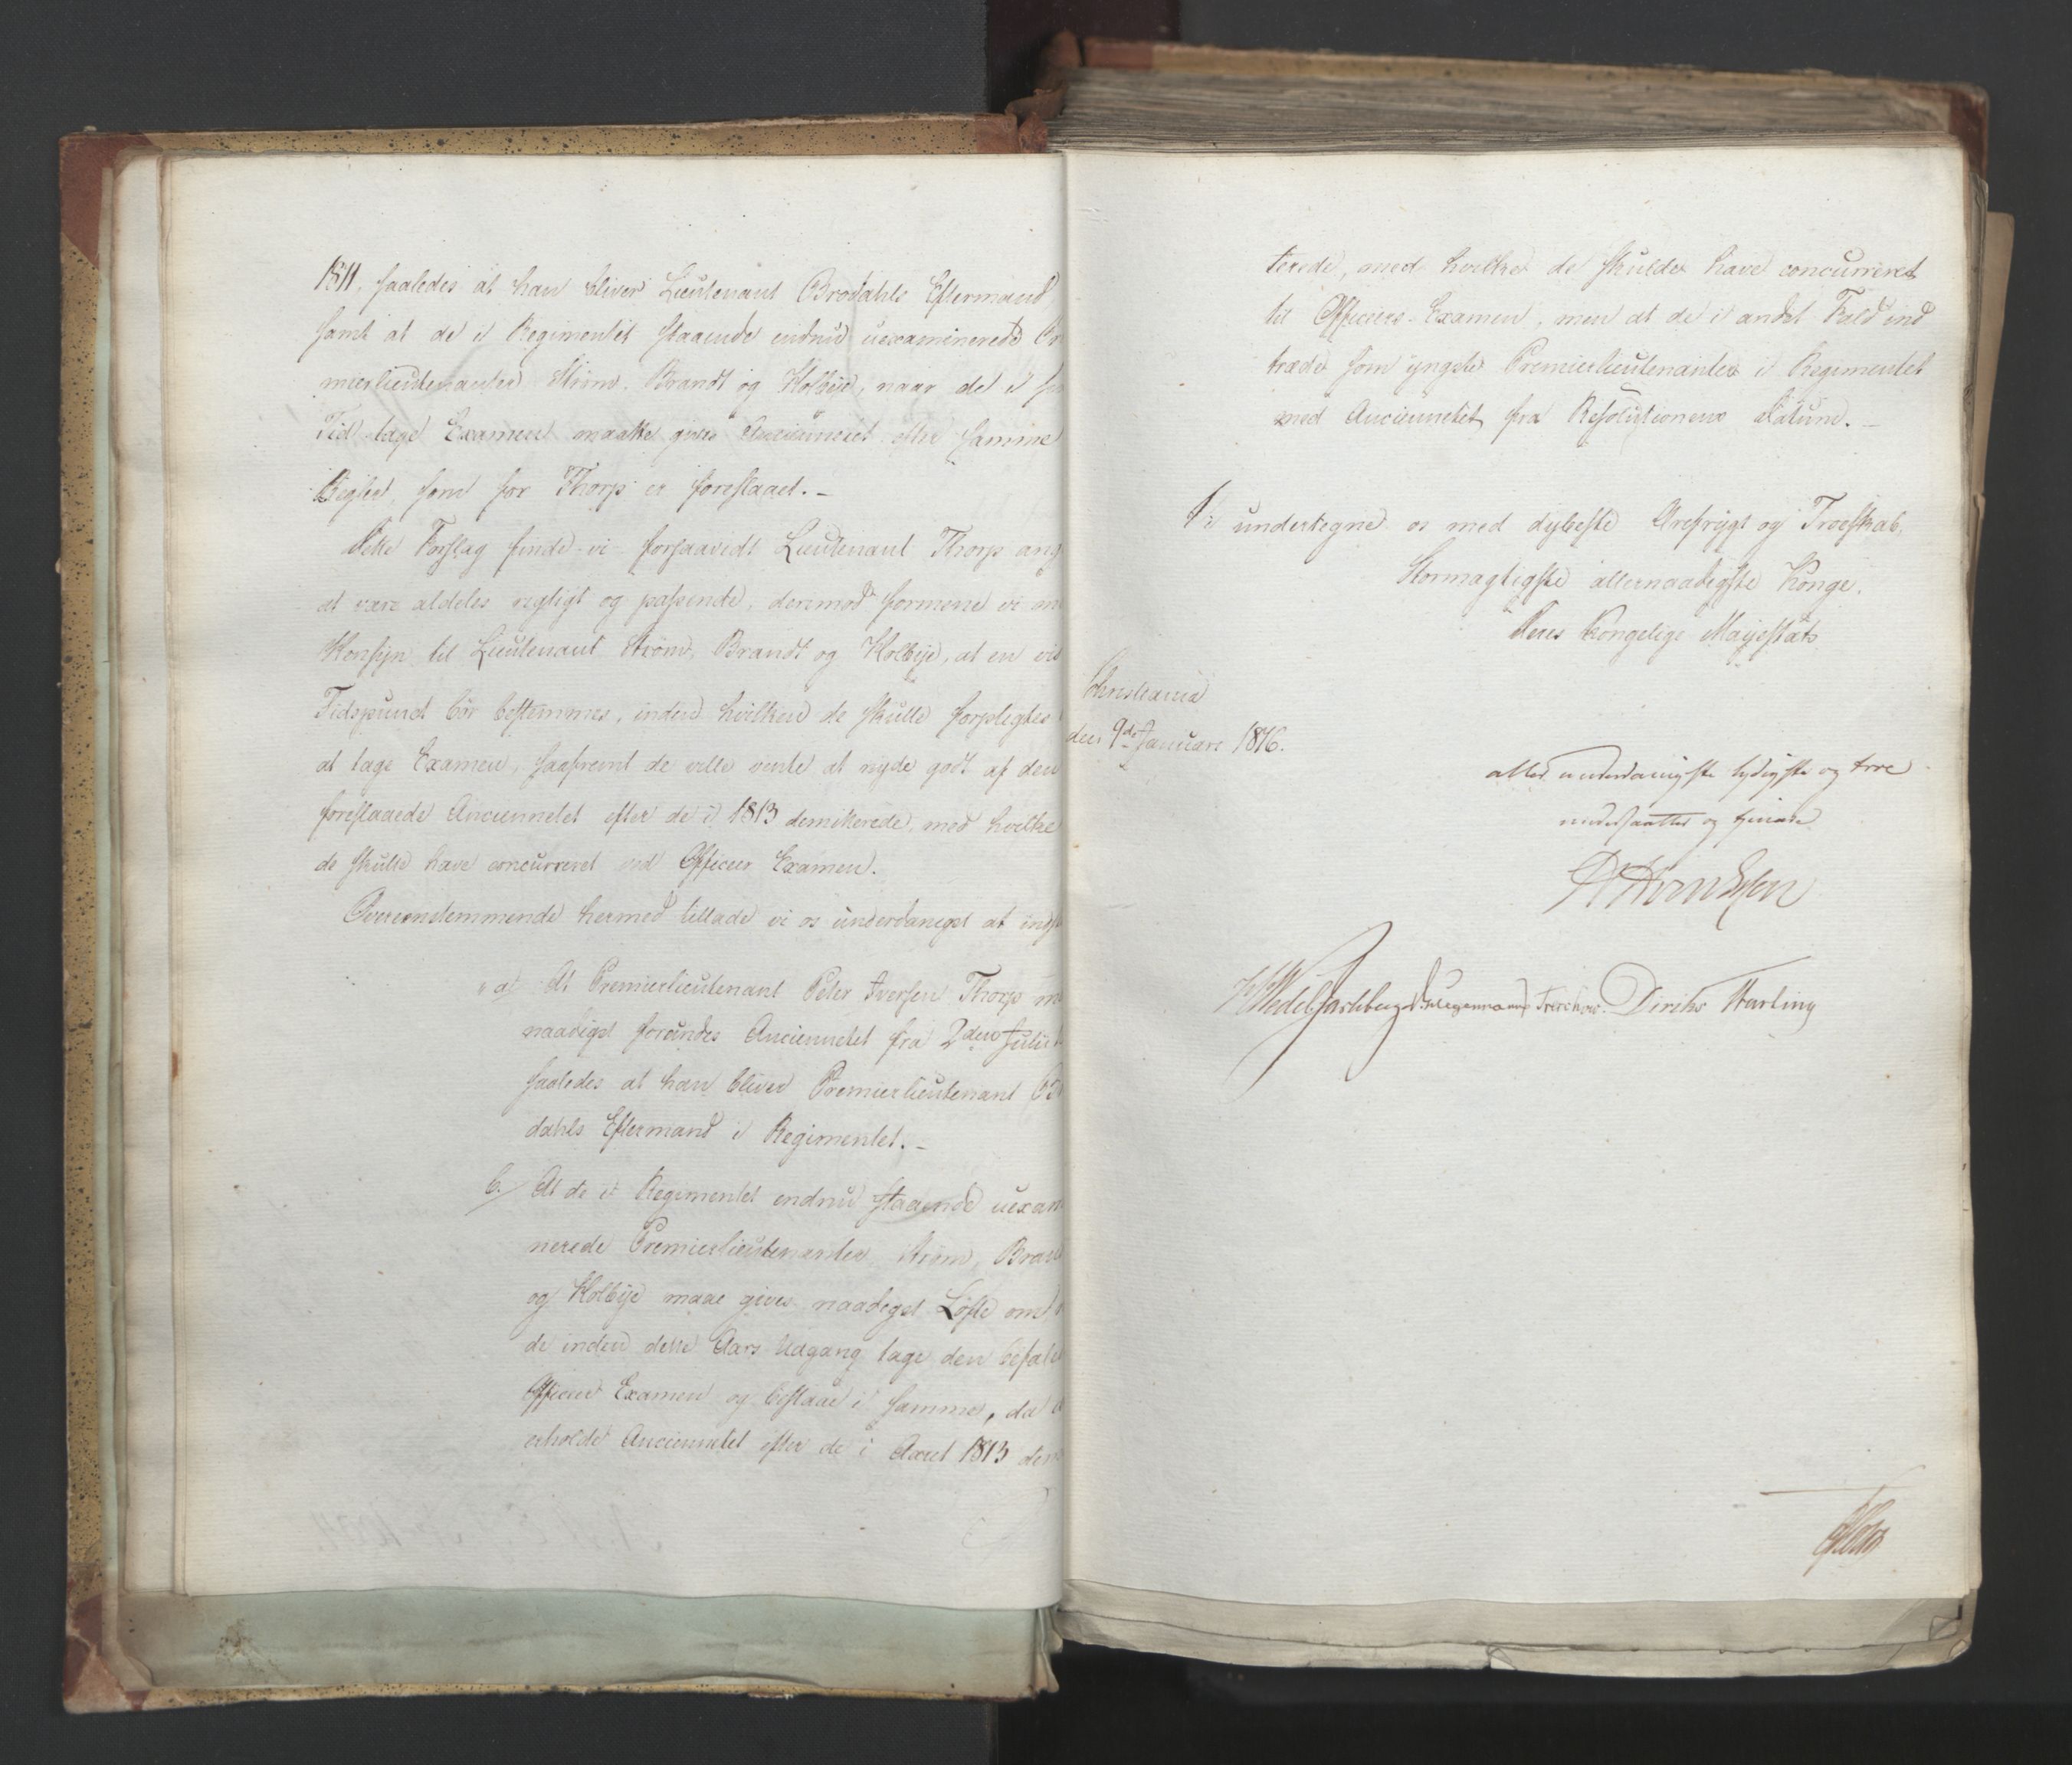 1811, saaledes at han bliver Lieutenant Brodahls Eftermand,
samt at de i Regimentet staaende endnu uexaminerede Pr
mierlieutenanter Strøm, Brandt og Kolbye, naar de i
Tid tage Examen maatte gives Anciennetet efter samme
Regler, som for Thorp er foreslaaet. –
Dette Forslag finde vi forsaavidt Lieutenant Thorp ang
at være aldeles rigtigt og passende, derimod formene vi
Hensyn til Lieutenant Strøm, Brandt og Kolbye, at en vis
Tidspunct bør bestemmes, inden hvilken de skulle forpligtes
at tage Examen, saafremt de ville vente at nyde godt af den
foreslaaede Anciennetet efter de i 1813 demitterede, med hvilke
de skulle have concurreret ved Officeer Examen.
Overeenstemmende hermed tillade vi os underdanigst at inds
a) At Premierlieutenant Peter Iversen Thorp m
naadigst forundes Anciennetet fra 2den Julii
saaledes at han bliver Premierlieutenant Bro
dahls Eftermand i Regimentet. –
b. At de i Regimentet endnu staaende uexam
nerede Premierlieutenanter Strøm, Brand
og Kolbye maae gives naadigst Løfte om
de inden dette Aars Udgang tage den befale
Officeer Examen og bestaae i samme, da
erholde Anciennetet efter de i Aaret 1813 dem
terede, med hvilke de skulde have concurreret
til Officeers-Examen, men at de i andet Fald ind
træde som yngste Premierlieutenanter i Regimentet
med Anciennetet fra Resolutionens Datum. –
Vi undertegne os med dybeste Ærefrygt og Troeskab,
Stormægtigste allernaadigste Konge.
Deres Kongelige Majestæts
Christiania
den 9de Januari 1816.
allerunderdanigste lydigste og troe
undersaatter og tjenere
Wedel Jarlsberg Treschow. Diriks Harling